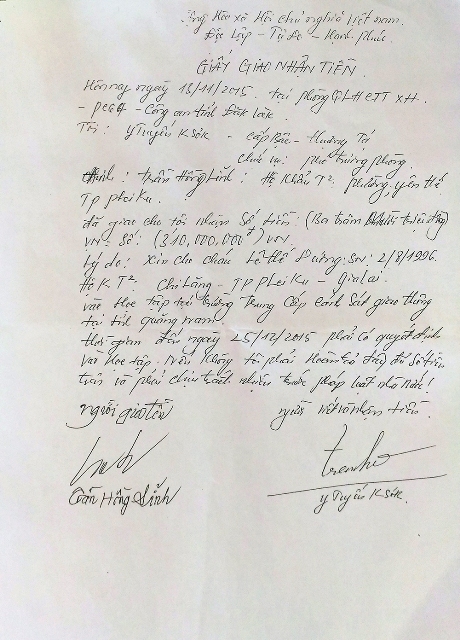 Cộng Hòa xã Hội chủ nghĩa Việt nam.
Độc Lập - Tự do - Hạnh phúc
GIẤY GIAO NHẬN TIỀN
Hôm nay ngày 18/11/2015. tại phòng QLHC TTXH.
- PC64 - Công an tỉnh Đắk Lắk.
Tôi: Y Tuyên KSơk - cấp Bậc - thượng Tá
chức vụ: phó trưởng phòng.
Anh: Trần Hồng Lĩnh: Hộ Khẩu T²: phường yên thế
TP pleiku.
đã giao cho tôi nhận số tiền: (Ba trăm mười triệu đồng)
VN: Số: (310,000,000đ) VN.
Lý do: Xin cho cháu Lê thế Dương: SN: 2/8/1996.
HKT²: Chi Lăng - TP pleiku - Gia lai.
vào học tập tại trường Trung cấp cảnh sát giao thông
tại tỉnh quảng nam.
thời gian đến ngày 25/12/2015 phải có quyết định
vào học tập. nếu không tôi phải hoàn trả đầy đủ số tiền
trên và phải chịu trách nhiệm trước pháp luật nhà nước!
người giao tiền người viết và nhận tiền.
Trần Hồng Lĩnh Y Tuyên KSơk.